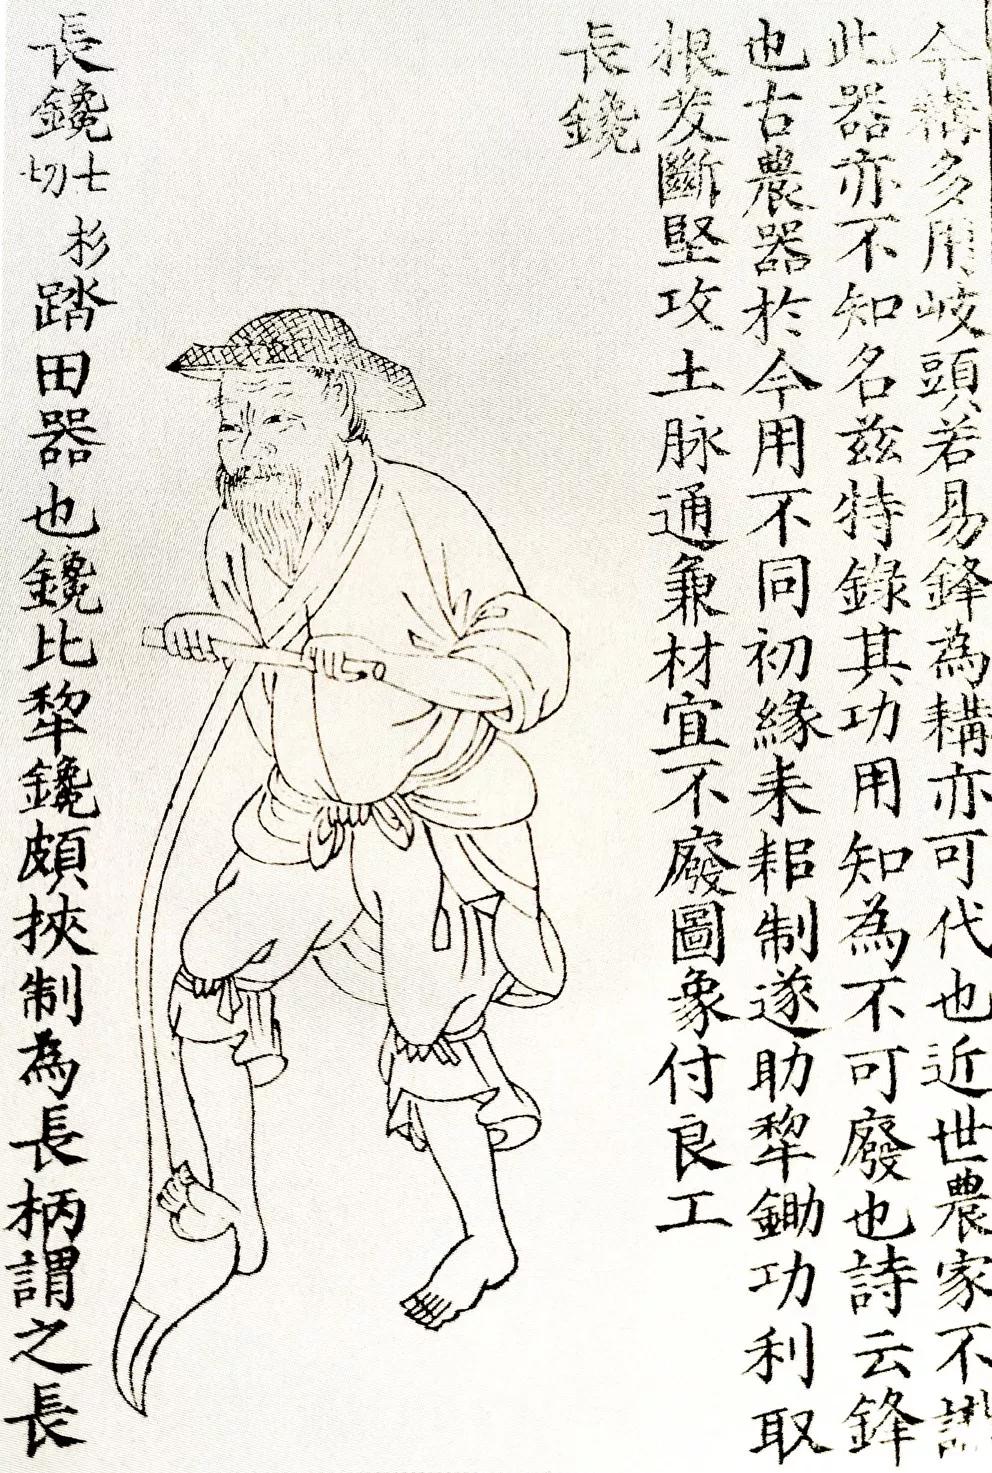 今耩多用岐頭若易鋒為耩亦可代也近世農家不識
此器亦不知名兹特錄其功用知為不可廢也詩云鋒
也古農器於今用不同初緣耒耜制遂助犂鋤功利取
根茇斷堅攻土脉通兼材宜不廢圖象付良工
長鑱
長鑱士杉切踏田器也鑱比犂鑱頗挾制為長柄謂之長